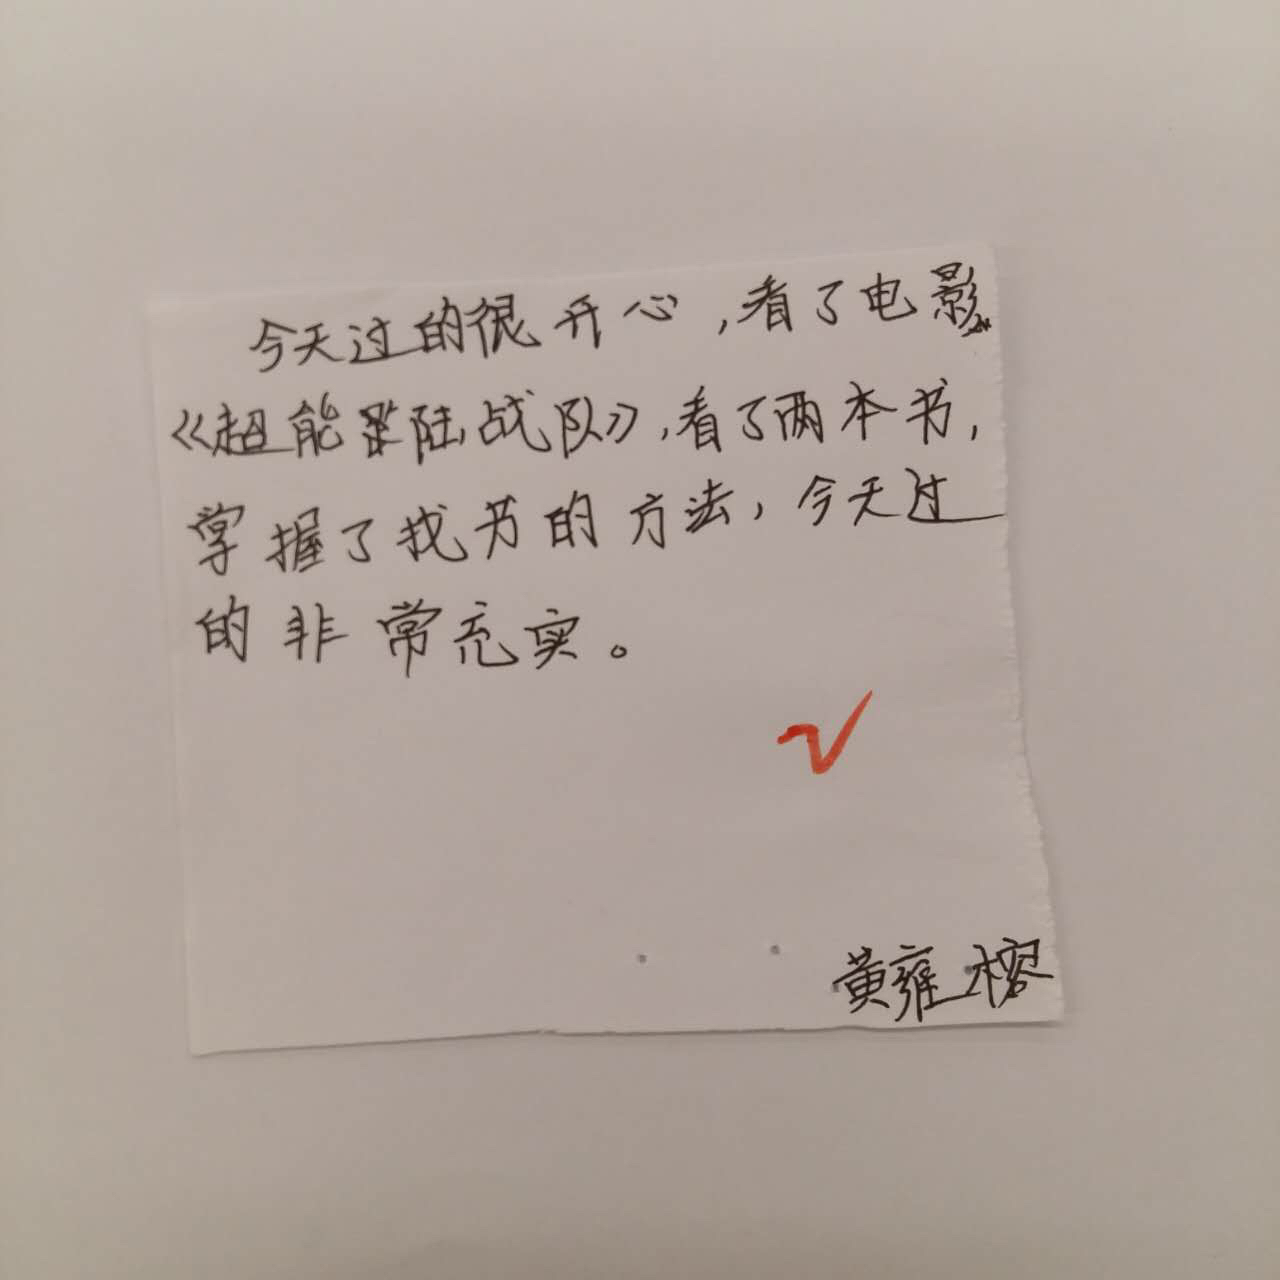 今天过的很开心,看了电影
《超能陆战队》,看了两本书,
掌握了找书的方法,今天过
的非常充实。
黄雍榕